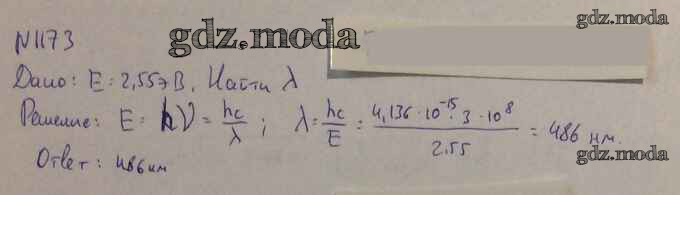 N 1173
gdz.moda
gdz.moda
Дано: E = 2,55 эВ. Найти λ
Решение: E = hν = hc/λ ; λ = hc/E = 4,136 · 10⁻¹⁵ · 3 · 10⁸ / 2.55 = 486 нм.
Ответ: 486 нм
gdz.moda